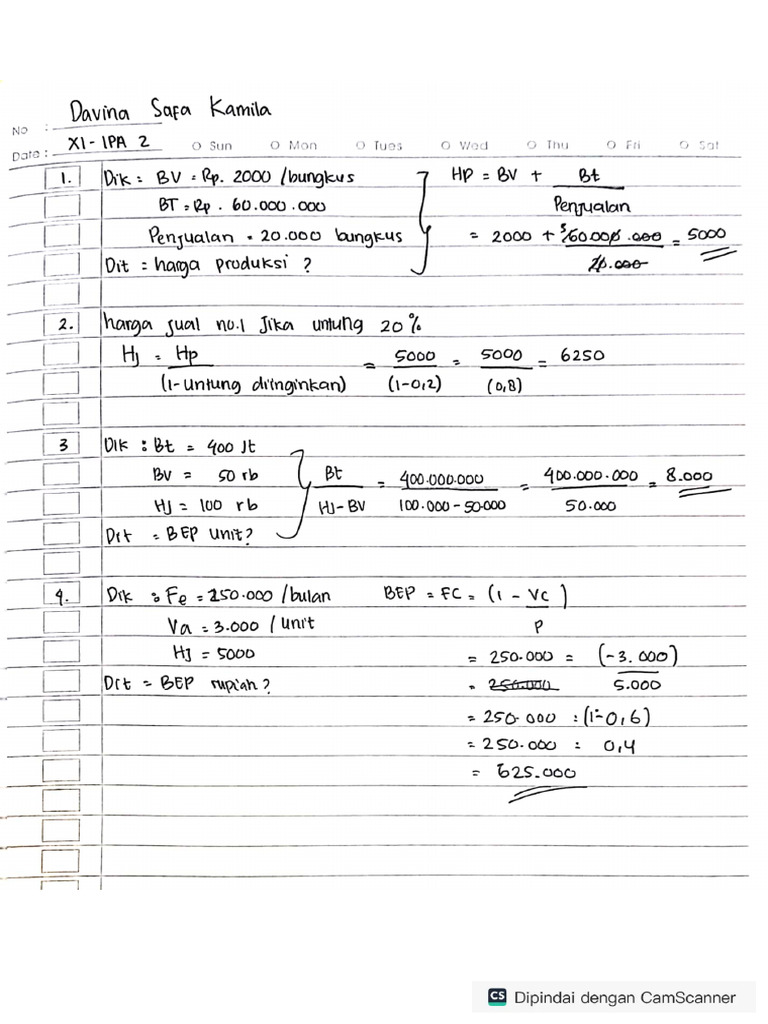 Davina Safa Kamila
No :
XI - IPA 2
Date : Sun Mon Tues Wed Thu Fri Sat
1. Dik = BV = Rp. 2000 /bungkus HP = BV + Bt
BT = Rp . 60.000.000 Penjualan
Penjualan = 20.000 bungkus = 2000 + 3 60.000.000 = 5000
Dit = harga produksi ? 20.000
2. harga jual no.1 Jika untung 20%
HJ = Hp = 5000 = 5000 = 6250
(1- untung diinginkan) (1-0,2) (0,8)
3 Dik : Bt = 400 Jt
BV = 50 rb Bt = 400.000.000 = 400.000.000 = 8.000
HJ = 100 rb HJ-BV 100.000-50.000 50.000
Dit = BEP unit?
4. Dik : Fe = 250.000 /bulan BEP = FC = (1 - VC )
Va = 3.000 / unit P
HJ = 5000 = 250.000 = (-3.000)
Dit = BEP rupiah ? = 250.000 5.000
= 250.000 : (1-0,6)
= 250.000 : 0,4
= 625.000
CS Dipindai dengan CamScanner